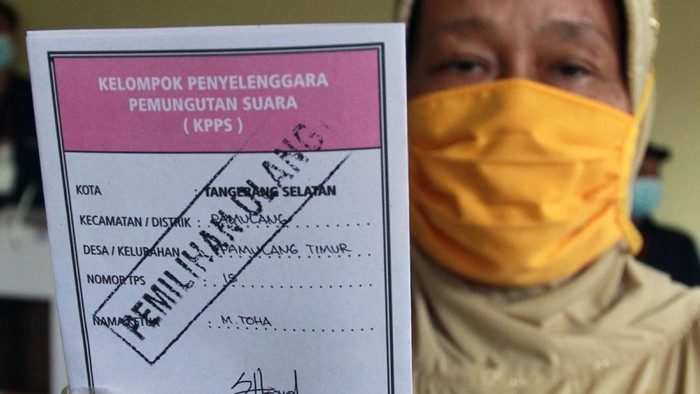 KELOMPOK PENYELENGGARA
PEMUNGUTAN SUARA
( KPPS )
PEMILIHAN ULANG
KOTA : TANGERANG SELATAN
KECAMATAN / DISTRIK : PAMULANG
DESA / KELURAHAN : PAMULANG TIMUR
NOMOR TPS : 15
NAMA KETUA : M. TOHA